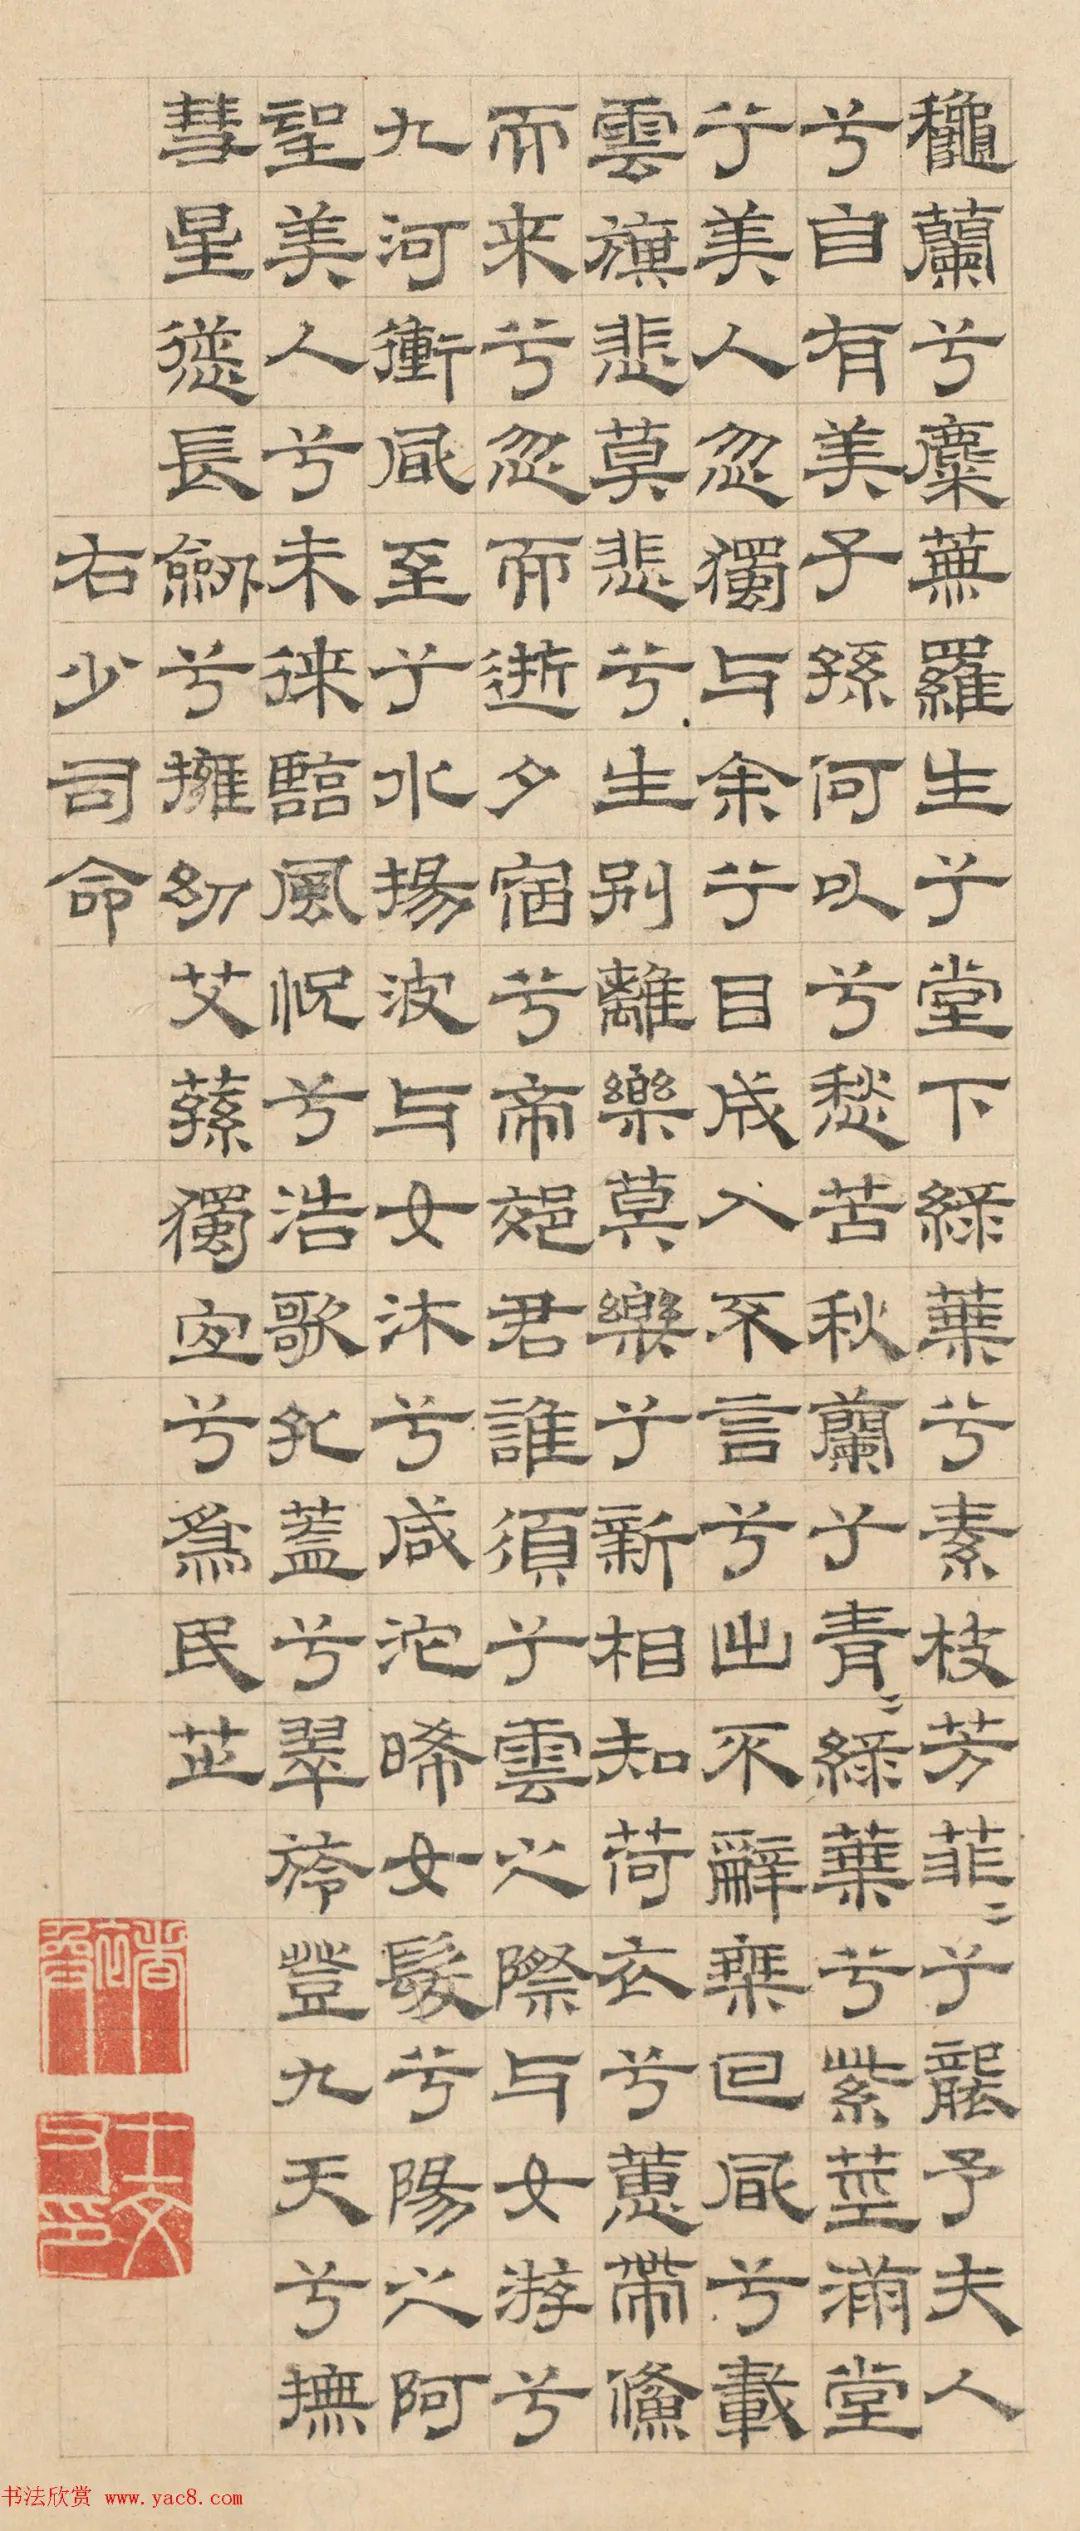 龝蘭兮麋蕪羅生乎堂下綠葉兮素枝芳菲〻乎襲予夫人
兮自有美子孫何以兮愁苦秋蘭乎青〻綠葉兮紫莖滿堂
乎美人忽獨与余乎目成入不言兮出不辭椉回風兮載
雲旗悲莫悲兮生别離樂莫樂乎新相知荷衣兮蕙帶儵
而来兮忽而逝夕宿兮帝郊君誰須乎雲之際与女游兮
九河衝風至乎水揚波与女沐兮咸沱晞女髮兮陽之阿
望美人兮未徠臨風怳兮浩歌孔蓋兮翠旍登九天兮撫
彗星慫長劒兮擁幼艾蓀獨宜兮為民芷
右少司命
王文
书法欣赏 www.yac8.com